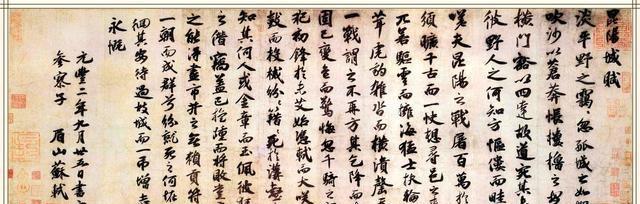 昆陽城賦
淡平野之靄〻忽孤城之如
吹沙以蒼莽悵樓櫓之
橫門豁以四達故道宛其
彼野人之何知方傴僂而畦
嗟夫昆陽之戰屠百萬於
須曠千古而一快想尋邑之
兀若驅雲而擁海猛士扶輪
茸虎豹雜沓而橫潰罄
一戰謂之不再方其乞降而
固已變色而驚悔忽千騎之
犯初鋒於未艾始憑軾而大笑
鼓而投械紛〻籍〻死於溝壑
知其何人或金章而玉佩彼狂
之僭竊蓋已旋踵而將敗豈
之能得盡市井之無賴貢符
一朝而成群兮紛就死之何怪
徊其安待過故城而一弔增志
永慨
元豐二年九月廿五日書
參寥子 眉山蘇軾